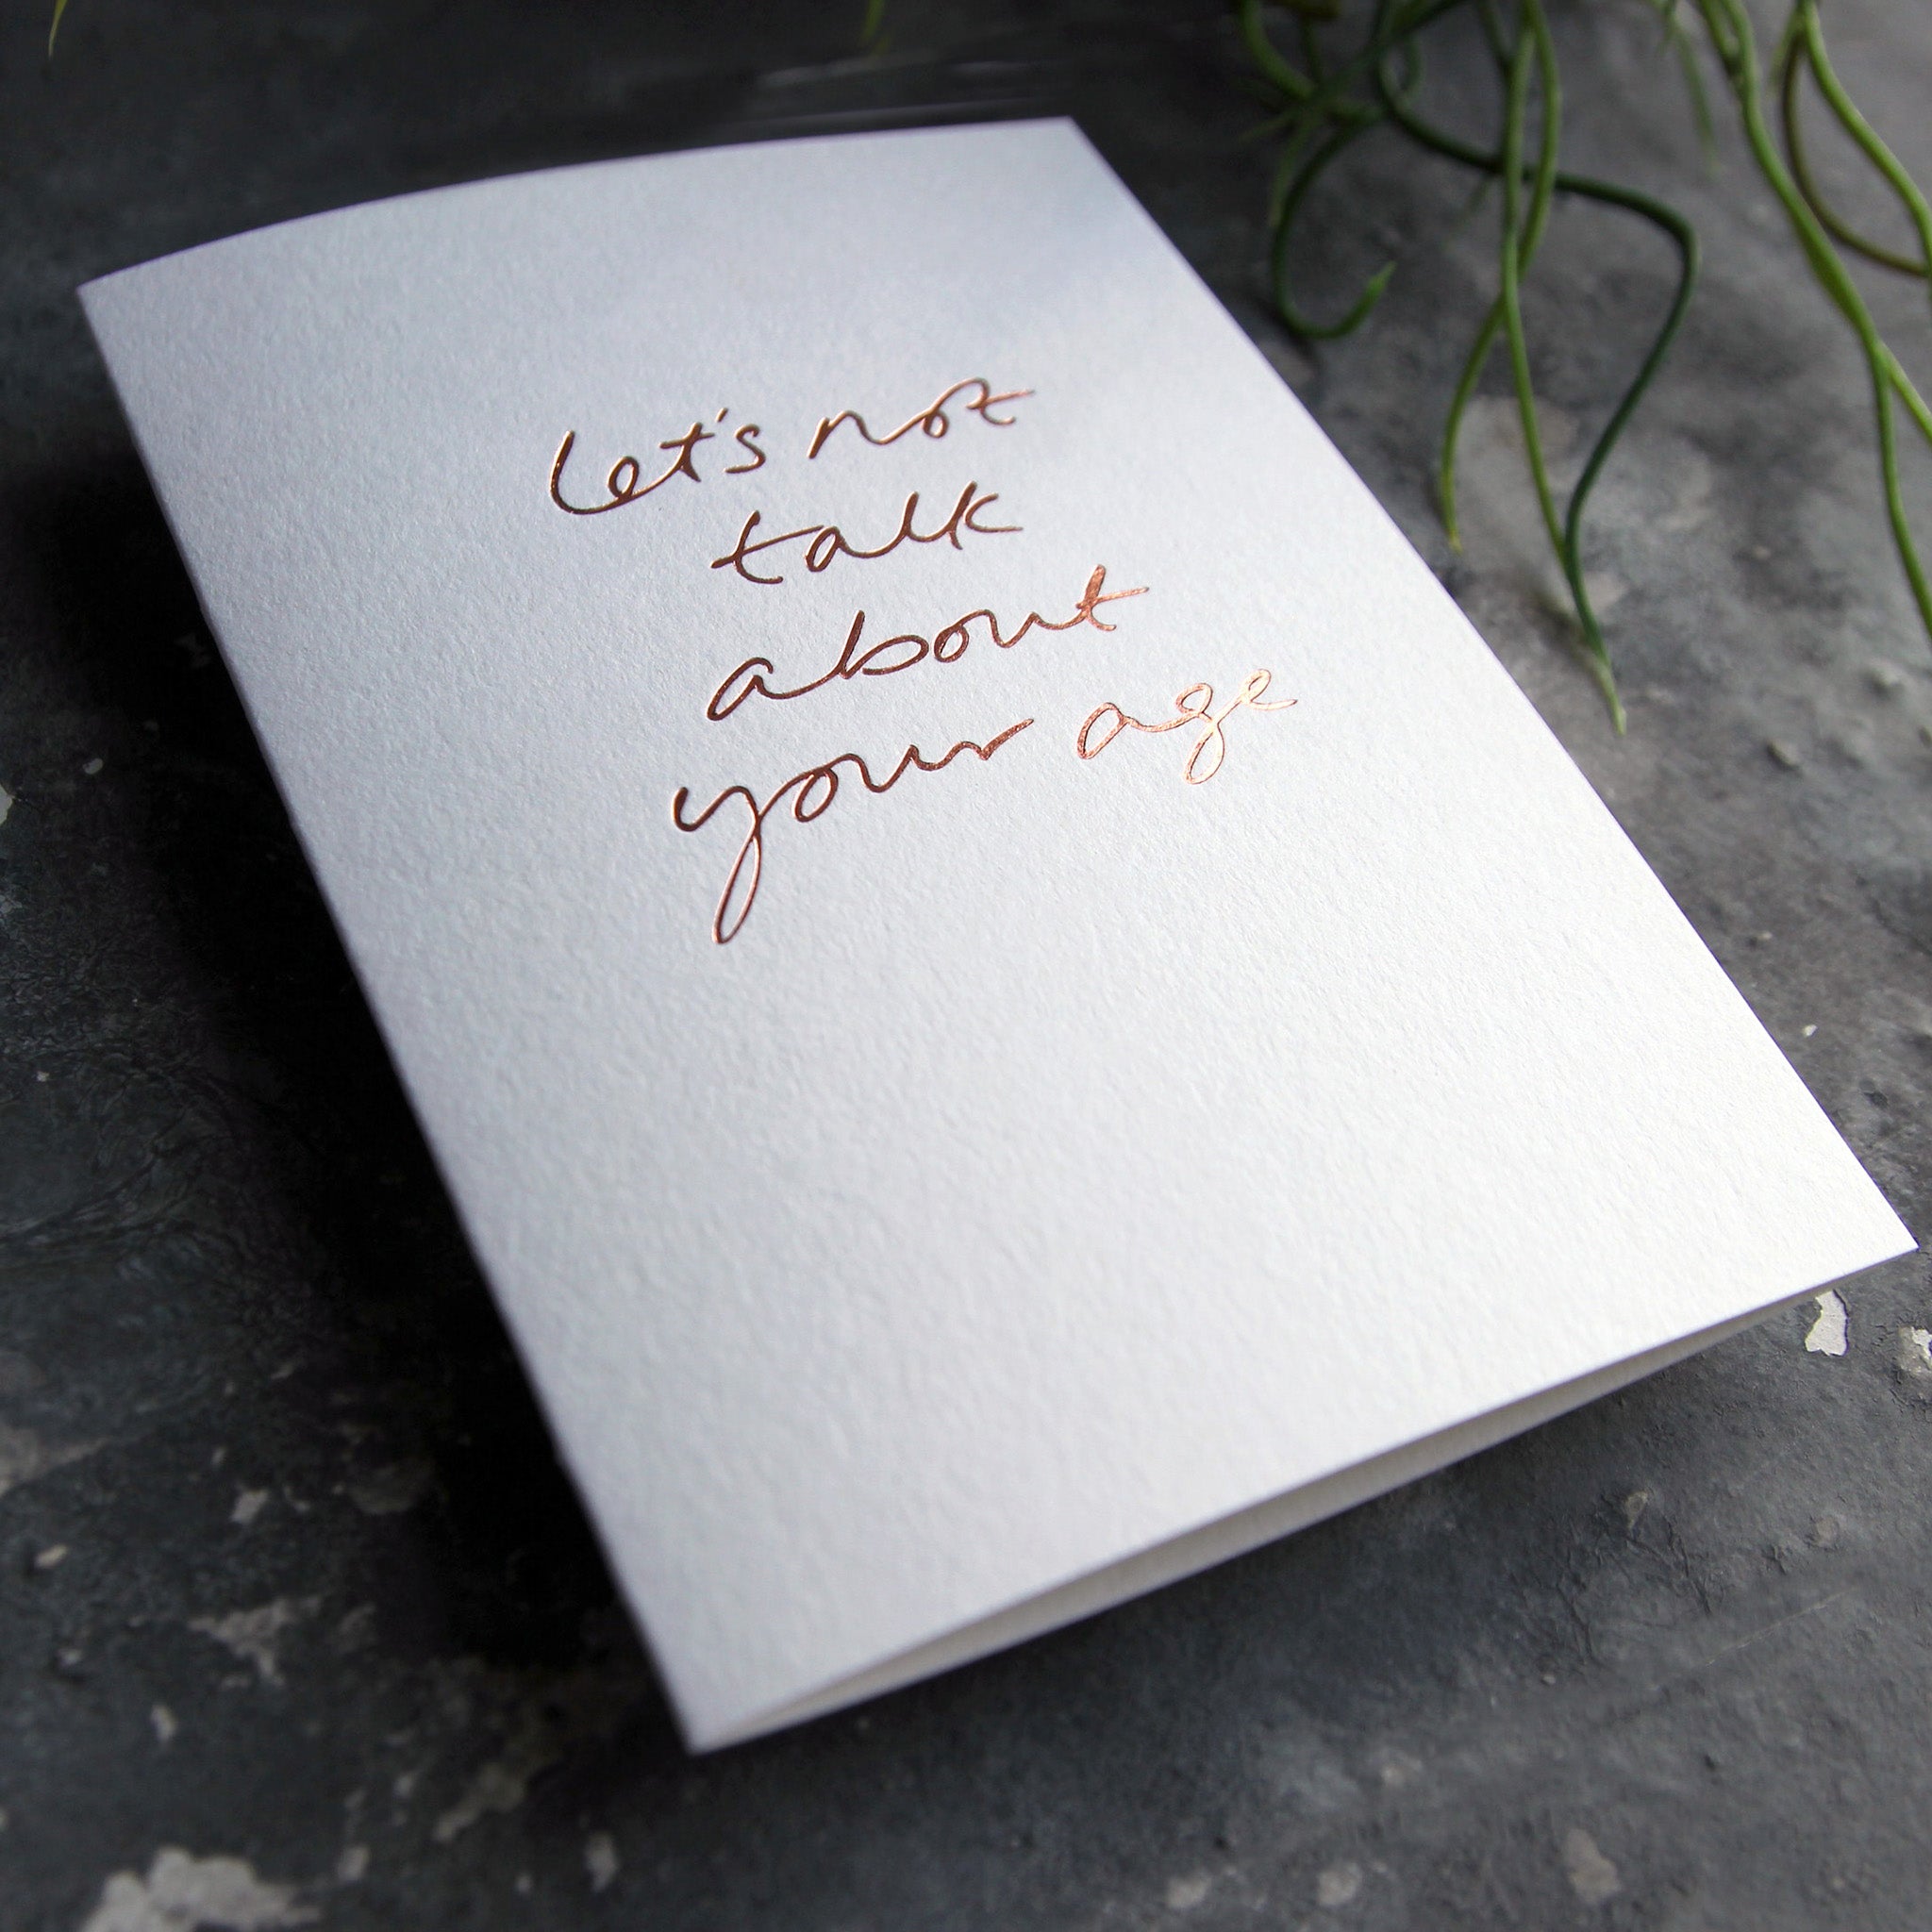 let's not
talk
about
your age